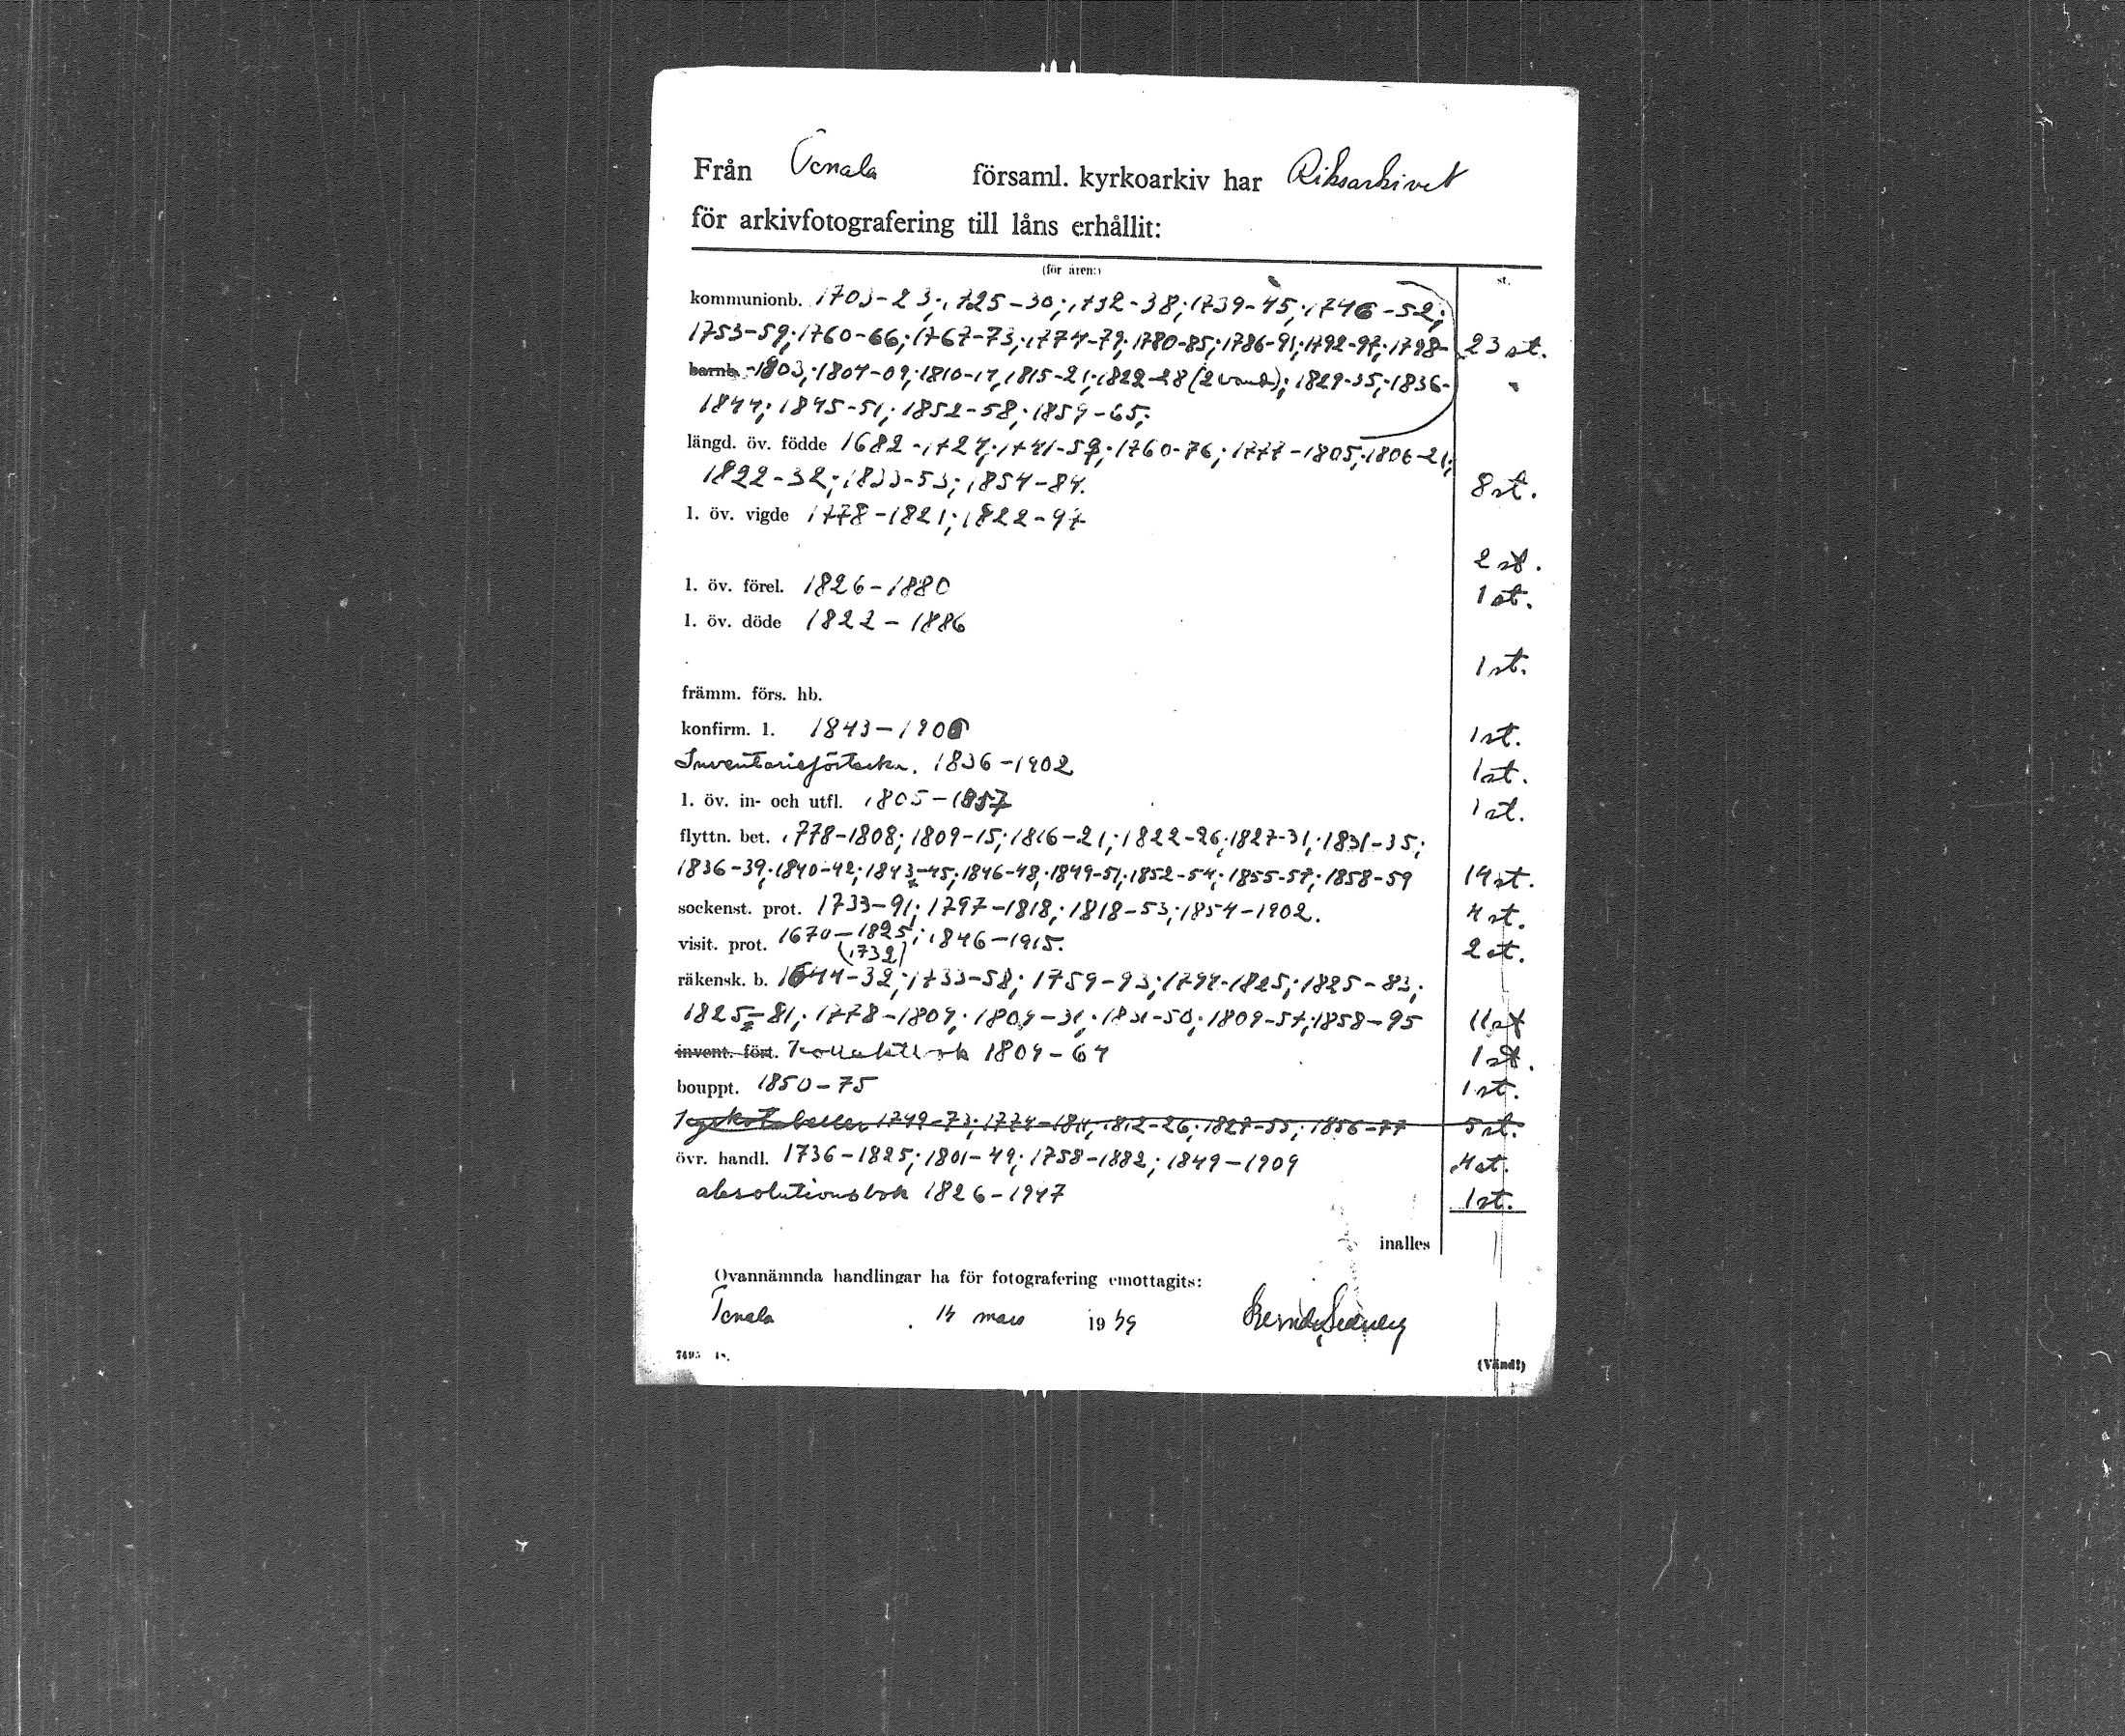 Från Tenala församl. kyrkoarkiv har Riksarkivet
för arkivfotografering till låns erhållit:
(för åren:) st.
kommunionb. 1703-23; 1725-30; 1732-38; 1739-45; 1746-52;
1753-59; 1760-66; 1767-73; 1774-79; 1780-85; 1786-91; 1792-97; 1798- 23 st.
barnb. -1803; 1804-09; 1810-14, 1815-21; 1822-28 (2 band); 1829-35; 1836-
1844; 1845-51; 1852-58; 1859-65;
längd. öv. födde 1682-1724; 1741-59; 1760-76; 1777-1805; 1806-21;
1822-32; 1833-53; 1854-84. 8 st.
l. öv. vigde 1778-1821; 1822-97
2 st.
l. öv. förel. 1826-1880 1 st.
l. öv. döde 1822-1886
1 st.
främm. förs. hb.
konfirm. l. 1843-1906 1 st.
Inventarieförteckn. 1836-1902 1 st.
l. öv. in- och utfl. 1805-1857 1 st.
flyttn. bet. 1778-1808; 1809-15; 1816-21; 1822-26; 1827-31; 1831-35;
1836-39; 1840-42; 1843-45; 1846-48; 1849-51; 1852-54; 1855-57; 1858-59 14 st.
sockenst. prot. 1733-91; 1797-1818; 1818-53; 1854-1902. 4 st.
visit. prot. 1670-1825; 1846-1915. 2 st.
(1732)
räkensk. b. 1644-32; 1733-58; 1759-93; 1794-1825; 1825-83;
1825-81; 1778-1809; 1809-31; 1831-50; 1809-57; 1858-95 11 st
invent. fört. Kollektbok 1804-64 1 st.
bouppt. 1850-75 1 st.
1749-73; 1774-1811; 1812-26; 1827-55; 1856-77 5 st.
övr. handl. 1736-1825; 1801-49; 1758-1882; 1849-1909 4 st.
absolutionsbok 1826-1947 1 st.
inalles
Ovannämnda handlingar ha för fotografering emottagits:
Tenala 14 mars 1949
(Vänd!)